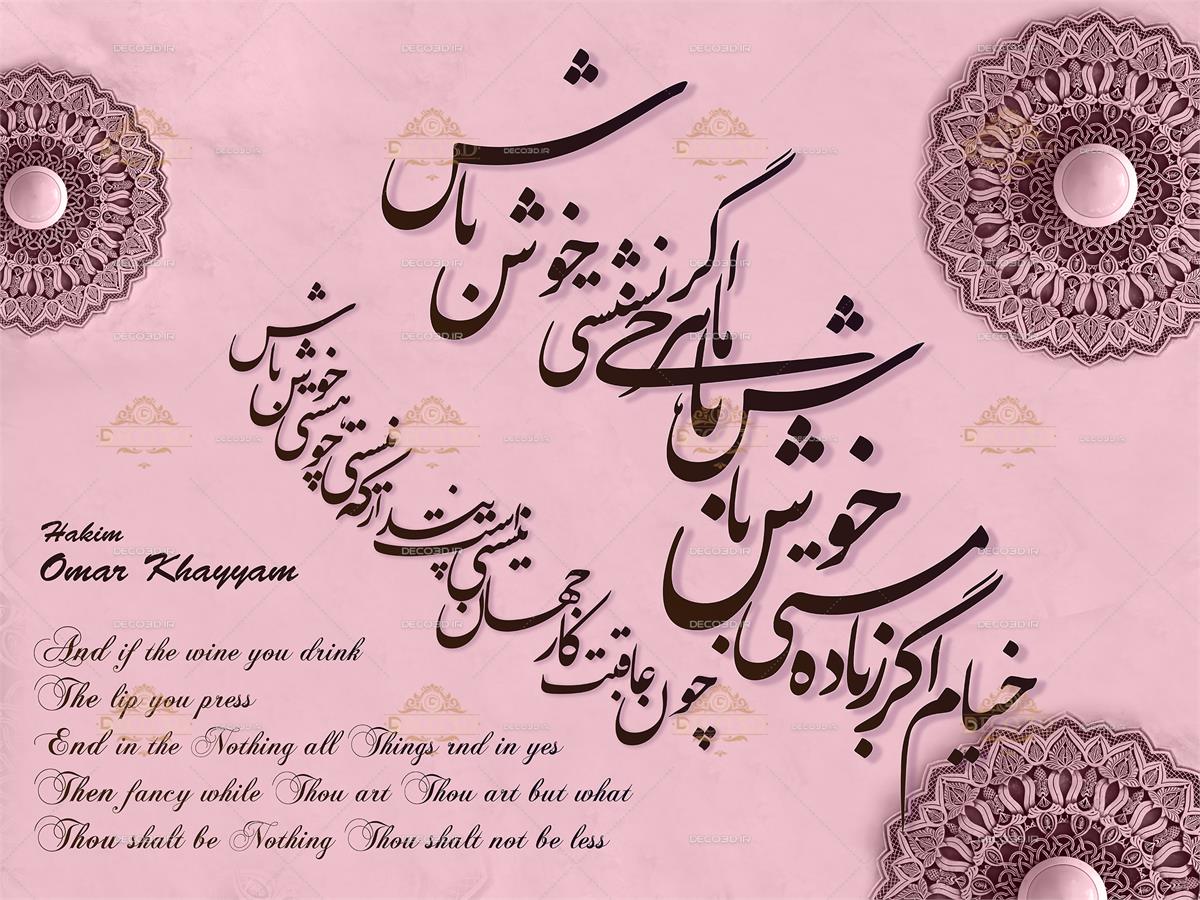 خیام اگر زباده مستی خوش باش
با ماهرخی اگر نشستی خوش باش
چون عاقبت کار جهان نیستی است
پندار که نیستی چو هستی خوش باش
Hakim
Omar Khayyam
And if the wine you drink
The lip you press
End in the Nothing all Things rnd in yes
Then fancy while Thou art Thou art but what
Thou shalt be Nothing Thou shalt not be less
DECO3D.IR